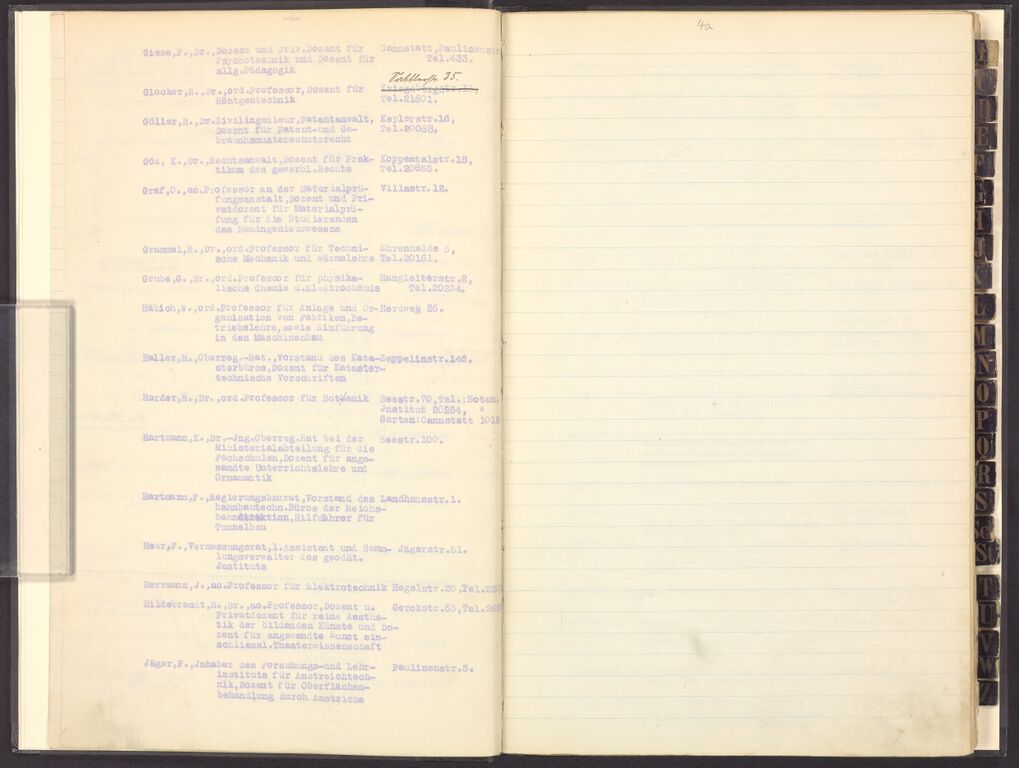 4a
Giese,F.,Dr.,Dozent und Priv.Dozent für Cannstatt,Paulinenstr
Psychotechnik und Dozent für Tel.433.
allg.Pädagogik
35.
Glocker,R.,Dr.,ord.Professor,Dozent für Kriegsbergstr.15,
Röntgentechnik Tel.21601.
Göller,H.,Dr.Zivilingenieur,Patentanwalt, Keplerstr.16,
Dozent für Patent-und Ge- Tel.20088,
brauchsmusterschutzrecht
Göz, K.,Dr.,Rechtsanwalt,Dozent für Prak- Koppentalstr.18,
tikum des gewerbl.Rechts Tel.20855.
Graf,O.,ao.Professor an der Materialprü- Villastr.12.
fungsanstalt,Dozent und Pri-
vatdozent für Materialprü-
fung für die Studierenden
des Bauingenieurwesens
Grammel,R.,Dr.,ord.Professor für Techni- Ehrenhalde 3,
sche Mechanik und Wärmelehre Tel.20161.
Grube,G.,Dr.,ord.Professor für physika- Hangleiterstr.2,
lische Chemie u.Elektrochemie Tel.20234.
Häbich,W.,ord.Professor für Anlage und Or-Herdweg 26.
ganisation von Fabriken,Be-
triebslehre,sowie Einführung
in den Maschinenbau
Haller,H.,Oberreg.-Rat.,Vorstand des Kata-Zeppelinstr.146.
sterbüros,Dozent für Kataster-
technische Vorschriften
Harder,R.,Dr.,ord.Professor für Botanik Seestr.70,Tel.:Botan.
Jnstitut 20264, "
Garten:Cannstatt 1019
Hartmann,K.,Dr.-Jng.Oberreg.Rat bei der Seestr.100.
Ministerialabteilung für die
Fachschulen,Dozent für ange-
wandte Unterrichtslehre und
Ornamentik
Hartmann,F.,Regierungsbaurat,Vorstand des Landhausstr.1.
bahnbautechn.Büros der Reichs-
bahndirektion,Hilfslehrer für
Tunnelbau
Heer,F.,Vermessungsrat,1.Assistent und Samm- Jägerstr.51.
lungsverwalter des geodät.
Jnstituts
Herrmann,J.,ao.Professor für Elektrotechnik Hegelstr.25,Tel.
Hildebrandt,H.,Dr.,ao.Professor,Dozent u. Gerokstr.63,Tel.
Privatdozent für reine Aesthe-
tik der bildenden Künste und Do-
zent für angewandte Kunst ein-
schliessl.Theaterwissenschaft
Jäger,P.,Jnhaber des Forschungs-und Lehr- Paulinenstr.5.
instituts für Anstreichtech-
nik,Dozent für Oberflächen-
behandlung durch Anstriche
D
E
F
G
I
J
K
L
M
N
O
P
Q
R
S
Sch
St
T
U
V
W
Z